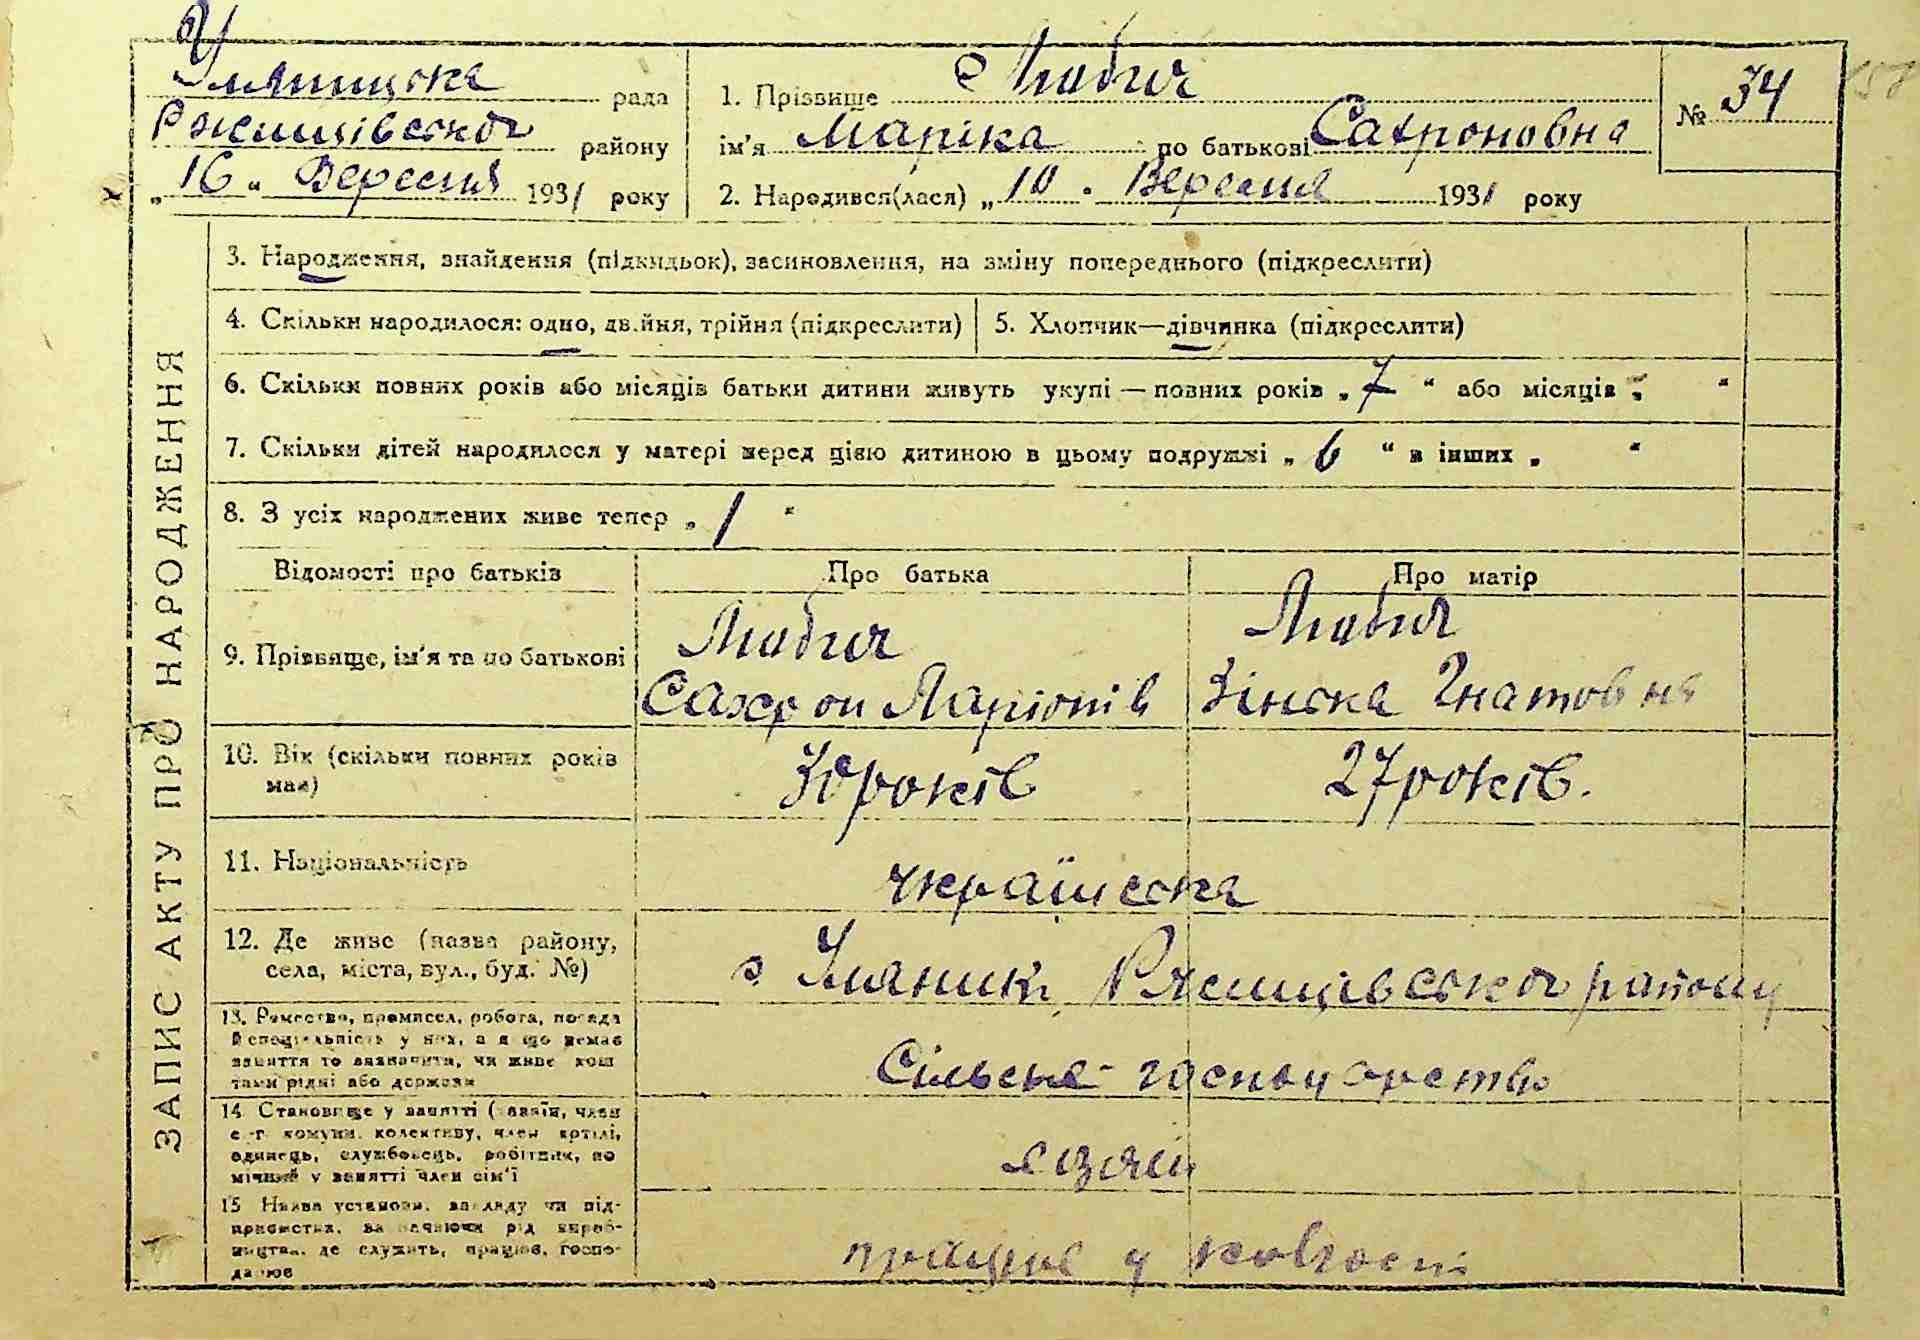 Уляницька рада
Ржищівського району
„16“ Вересня 1931 року
1. Прізвище Любич
ім'я Маріка по батькові Сахроновна
№ 34
2. Народився(лася) „10“ Вересня 1931 року
ЗАПИС АКТУ ПРО НАРОДЖЕННЯ
3. Народження, знайдення (підкидьок), засиновлення, на зміну попереднього (підкреслити)
4. Скільки народилося: одно, двійня, трійня (підкреслити)
5. Хлопчик—дівчинка (підкреслити)
6. Скільки повних років або місяців батьки дитини живуть укупі — повних років „7“ або місяців „ “
7. Скільки дітей народилося у матері перед цією дитиною в цьому подружжі „6“ в інших „ “
8. З усіх народжених живе тепер „1“
Відомості про батьків
Про батька
Про матір
9. Прізвище, ім'я та по батькові
Любич
Сахрон Ларіонів
Любич
Зінька Гнатовна
10. Вік (скільки повних років
має)
30 років
27 років.
11. Національність
українська
12. Де живе (назва району,
села, міста, вул., буд. №)
с Уляники Ржищівського району
13. Ремество, промисел, робота, посада
й спеціяльність у них, а якщо немає
заняття то зазначити, чи живе кош
тами рідні або держави
Сільське-господарство
14 Становище у занятті (хазяїн, член
с-г комуни, колективу, член артілі,
одинець, службовець, робітник, по
мічний у занятті член сім'ї
хазяїн
15 Назва установи, закладу чи під-
приємства, зазначаючи рід вироб-
ництва, де служить, працює, госпо-
дарює
працює у